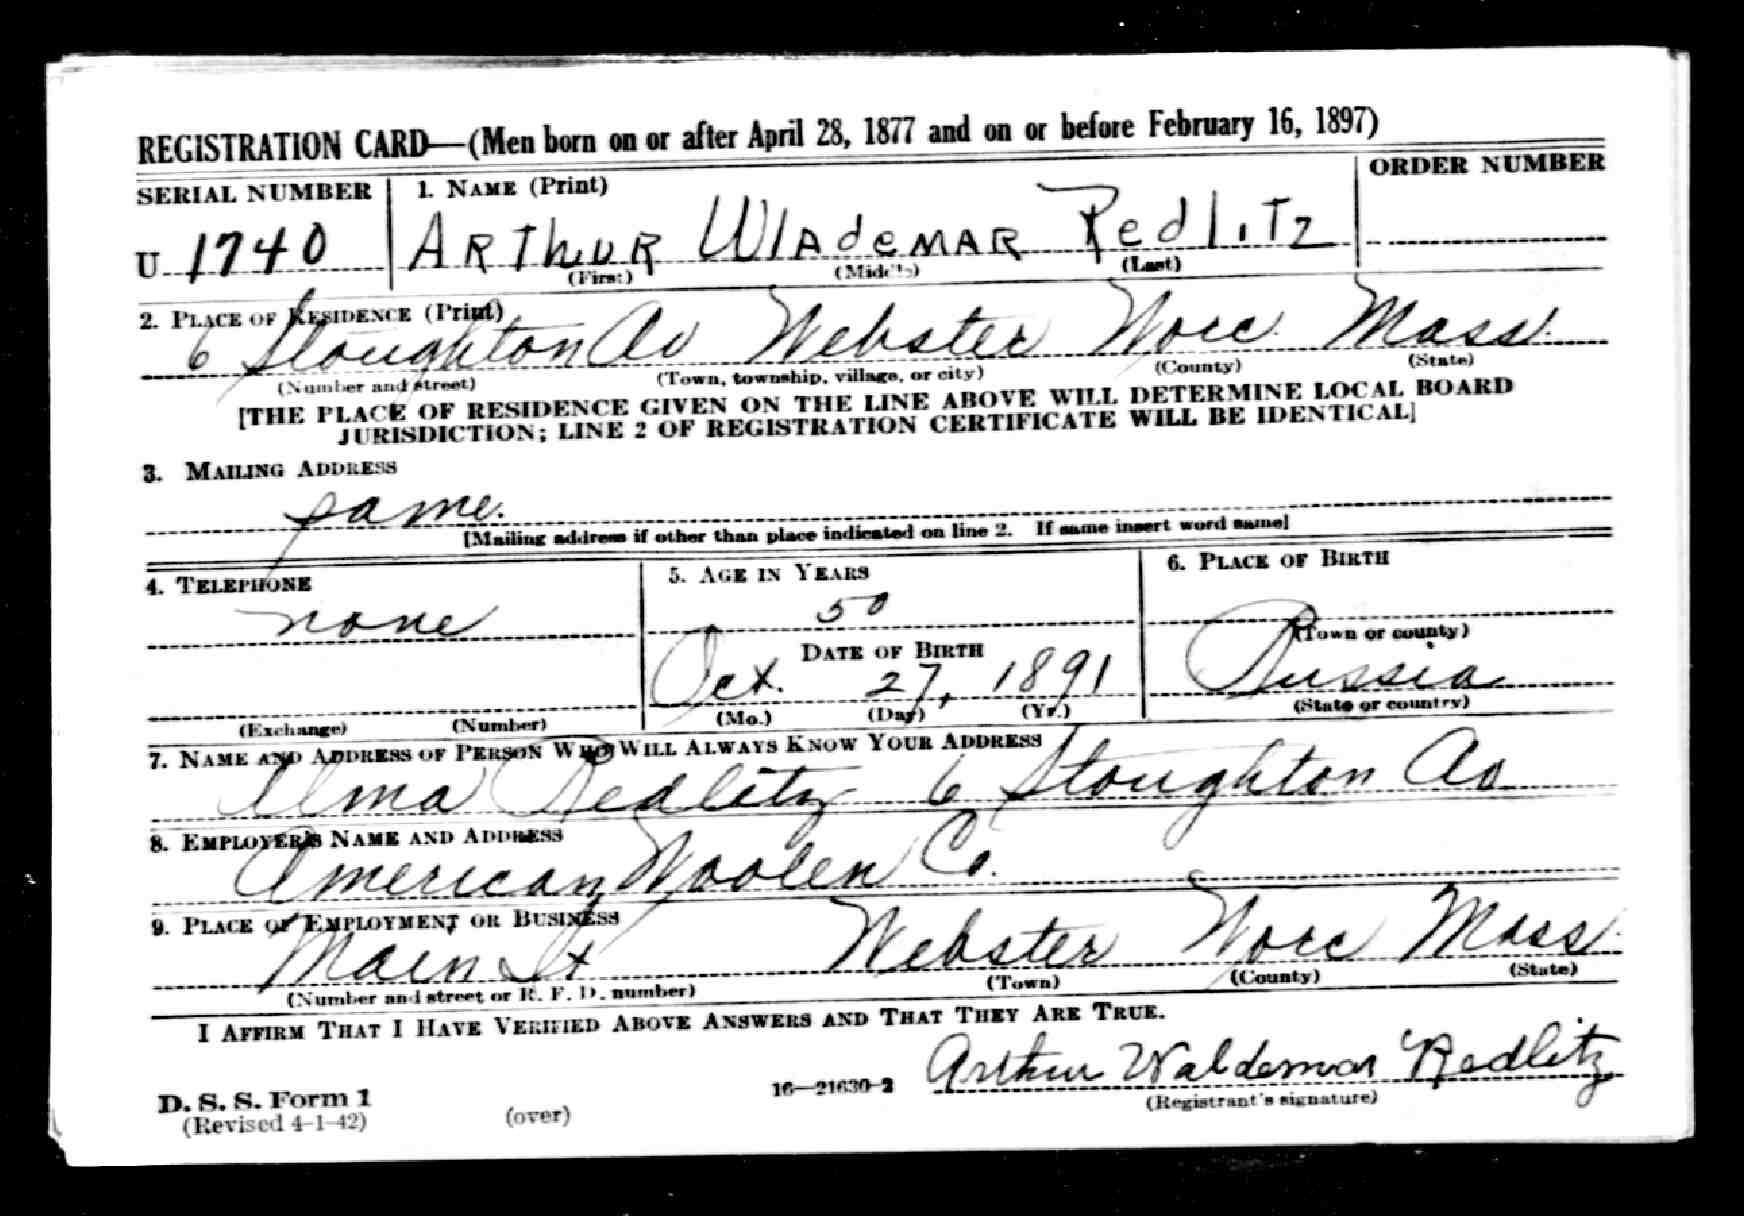 REGISTRATION CARD—(Men born on or after April 28, 1877 and on or before February 16, 1897)
SERIAL NUMBER 1. NAME (Print) ORDER NUMBER
U 1740 ARThUR WlAdeMAR RedliTz
(First) (Middle) (Last)
2. PLACE OF RESIDENCE (Print)
6 Stoughton Av Webster Worc. Mass.
(Number and street) (Town, township, village, or city) (County) (State)
[THE PLACE OF RESIDENCE GIVEN ON THE LINE ABOVE WILL DETERMINE LOCAL BOARD
JURISDICTION; LINE 2 OF REGISTRATION CERTIFICATE WILL BE IDENTICAL]
3. MAILING ADDRESS
same.
[Mailing address if other than place indicated on line 2. If same insert word same]
4. TELEPHONE 5. AGE IN YEARS 6. PLACE OF BIRTH
none 50
(Town or county)
DATE OF BIRTH
Oct. 27, 1891 Russia
(Exchange) (Number) (Mo.) (Day) (Yr.) (State or country)
7. NAME AND ADDRESS OF PERSON WHO WILL ALWAYS KNOW YOUR ADDRESS
Redlitz 6 Stoughton Av
8. EMPLOYER'S NAME AND ADDRESS
American Woolen Co.
9. PLACE OF EMPLOYMENT OR BUSINESS
Main St Webster Worc Mass.
(Number and street or R. F. D. number) (Town) (County) (State)
I AFFIRM THAT I HAVE VERIFIED ABOVE ANSWERS AND THAT THEY ARE TRUE.
Arthur Waldemar Redlitz
D. S. S. Form 1 16—21630-2 (Registrant's signature)
(Revised 4-1-42) (over)